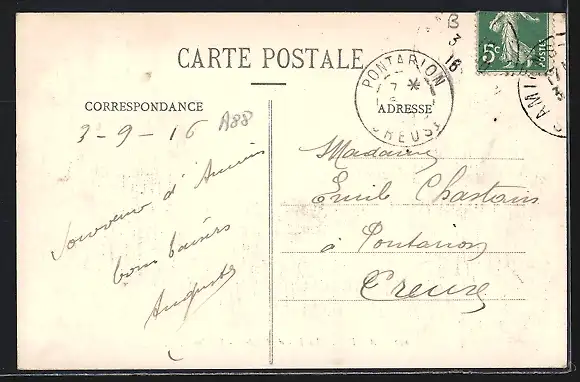 B
3
16
5c
POSTES
CARTE POSTALE
PONTARION
7 *
CREUSE
CAMIN
CORRESPONDANCE
ADRESSE
3-9-16
A88
Souvenir d'Amiens
bons baisers
Auguste
Madame
Emile Chastans
à Pontarion
Creuse